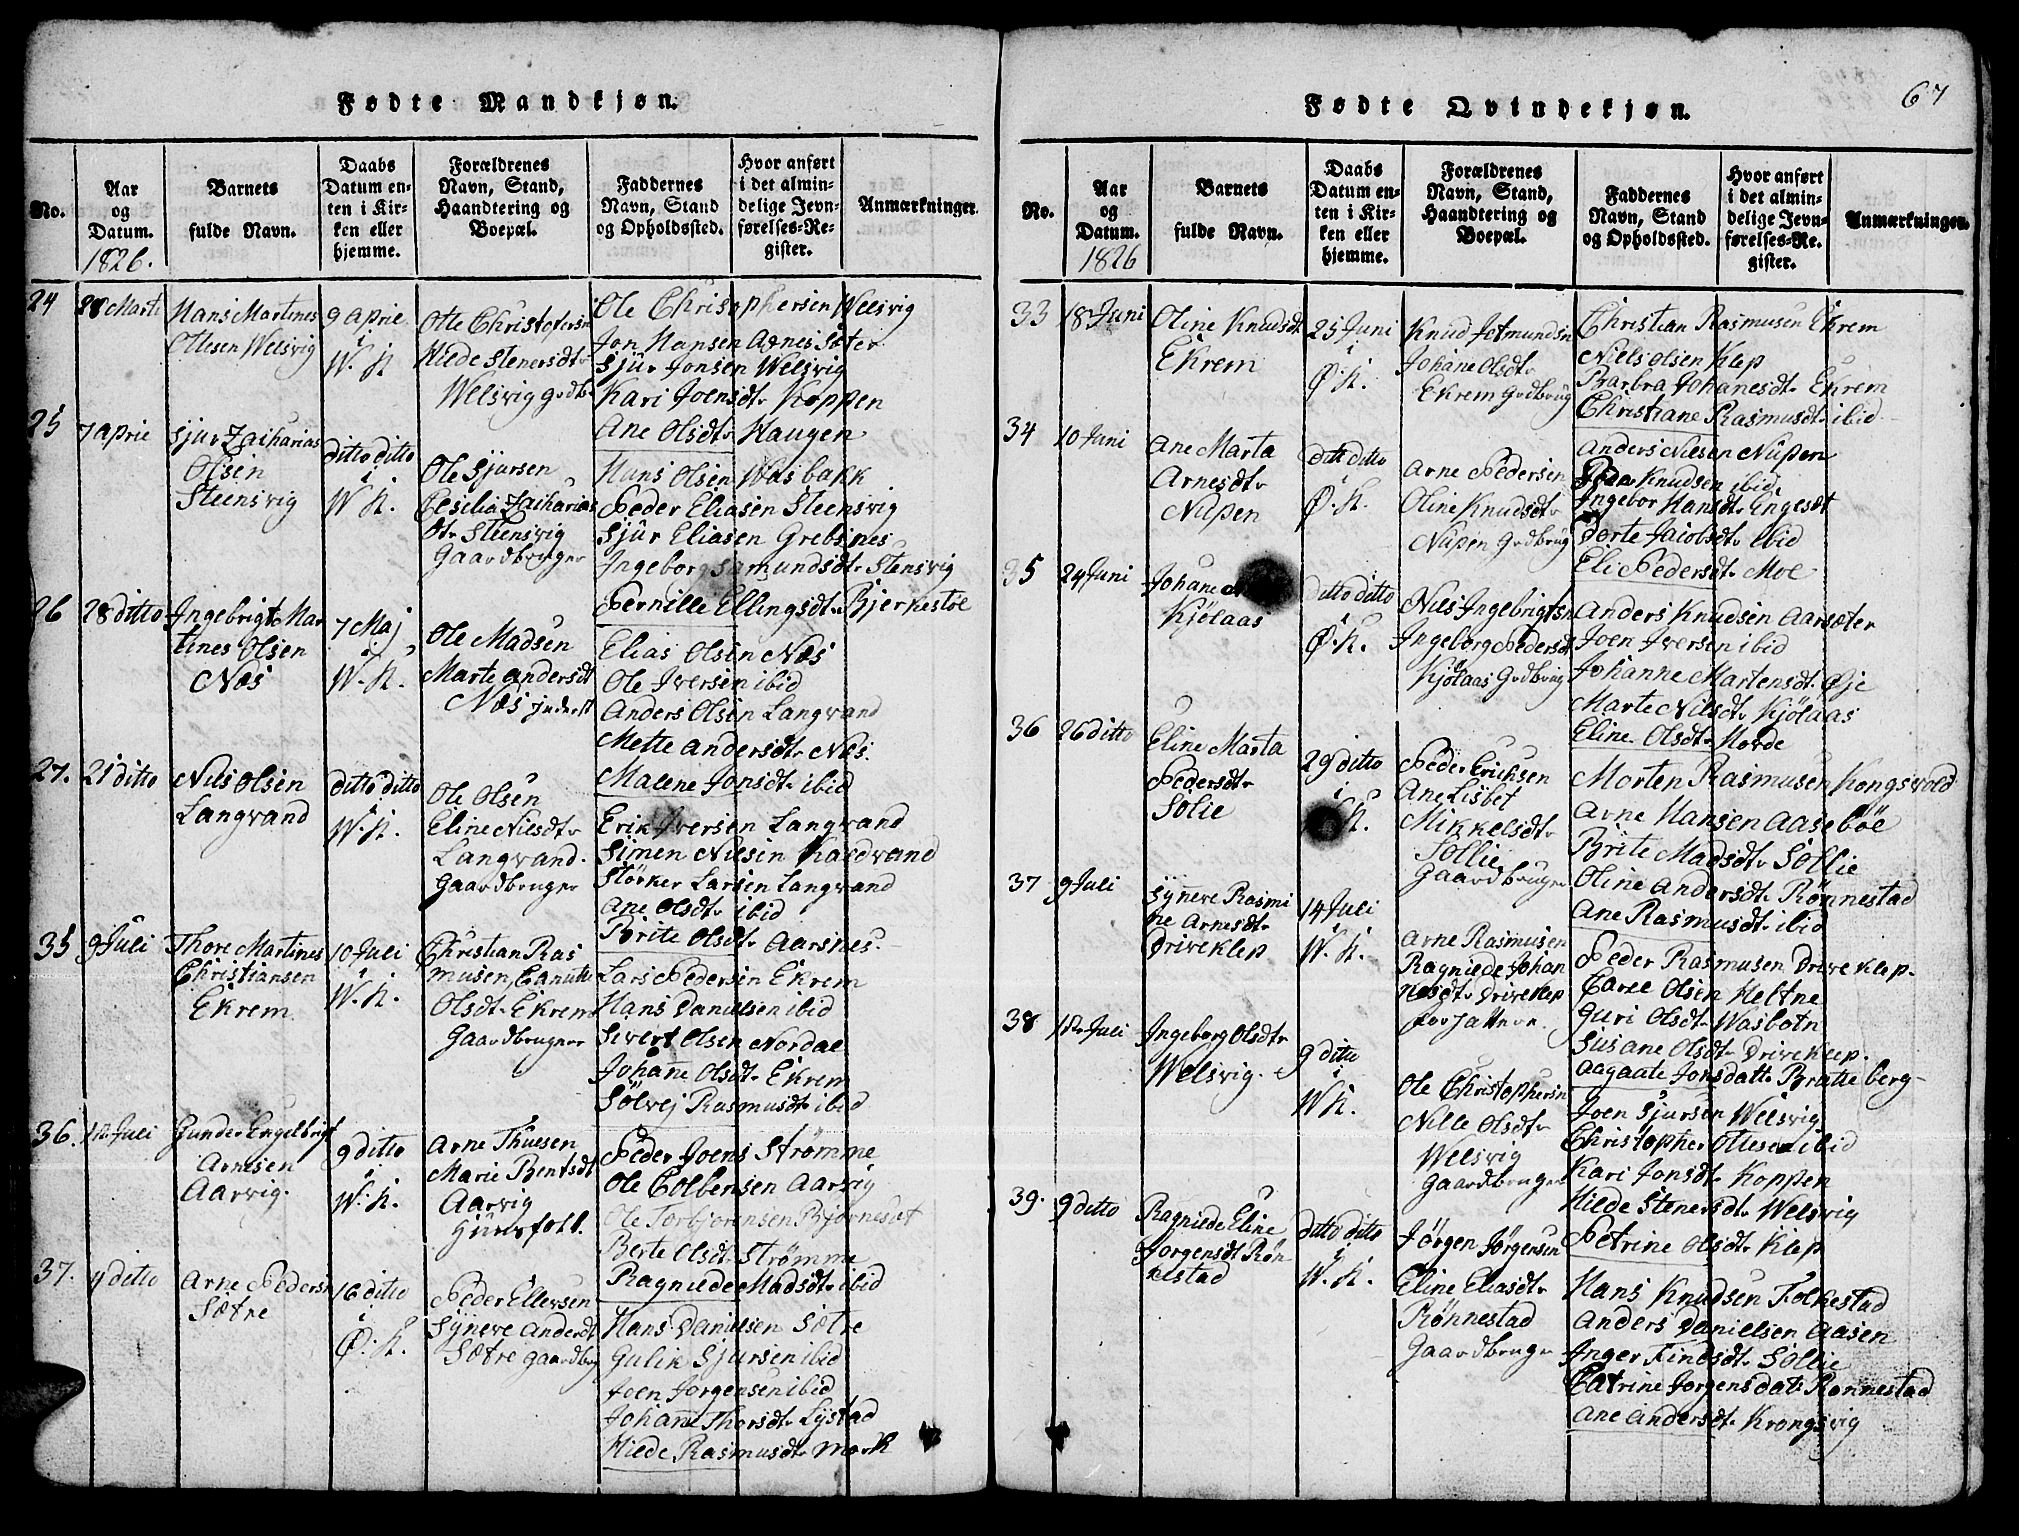 Fødte Mandkjøn.
No.
Aar
og
Datum.
1826.
Barnets
fulde Navn.
Daabs
Datum en-
ten i Kir-
ken eller
hjemme.
Forældrenes
Navn, Stand,
Haandtering og
Boepæl.
Faddernes
Navn, Stand
og Opholdssted.
Hvor anført
i det almin-
delige Jevn-
førelses-Re-
gister.
Anmærkninger.
24
28 Marti
Hans Martines
Ottesen Welsvig
9 Aprie
i
W. K
Otte Christofersn
Hilde Stenersdtr
Welsvig grdb.
Ole Christophersen Welsvig
Jon Hansen Agnesæter
Sjur Jonsen Welsvig
Kari Joensdtr Koppen
Ane Olsdtr Haugen
25
7 Aprie
Sjur Zacharias
Olsen
Steensvig
ditto ditto
i
W K.
Ole Sjursen
Cesilia Zacharias
dtr Steensvig
Gaardbruger
Hans Olsen Wasbakk
Peder Eliasen Steensvig
Sjur Eliasen Grebsnes
Ingeborg Samundsdtr Stensvig
Pernille Ellingsdtr Bjernestøe
26
28 ditto
Ingebrigt Mar
tines Olsen
Næs
7 Maj
i
W. K.
Ole Madsen
Marte Andersdt
Næs Inderst
Elias Olsen Næs
Ole Iversen ibid
Anders Olsen Langvand
Mette Andersdtr Næs.
Malene Jonsdtr ibid
27.
21 ditto
Nils Olsen
Langvand
ditto ditto
i
W. K.
Ole Olsen
Eline Nilsdtr
Langvand.
Gaardbruger
Erik Iversen Langvand
Simen Nilsen Kaldvand
Størker Larsen Langvand
Ane Olsdtr ibid
Brite Olsdtr Aarsnes.
35
9 Juli
Thore Martines
Christiansen
Ekrem
10 Juli
i
W. K.
Christian Ras
musen, Canutte
Olsdtr Ekrem
Gaardbruger
Lars Pedersen Ekrem
Hans Danielsen ibid
Sivert Olsen Nordal
Johane Olsdtr Ekrem
Sølvej Rasmusdtr ibid
36.
Juli
Gunder Engelbrigt
Arnesen
Aarvig.
9 ditto
i
W. K.
Arne Thuesen
Marie Bentsdt
Aarvig
Huusfolk.
Peder Joens Strømme
Ole Colbensen Aarvig
Ole Torbjørensen Bjørneset
Berte Olsdtr Strømme
Ragnilde Madsdtr ibid
37.
ditto
Arne Pedersn
Sætre
16 ditto
i
Ø. K.
Peder Ellersen
Synneve Andersdt
Sætre Gaardbrug
Hans Danielsen Sætre
Gulik Sjursen ibid
Joen Jorgensen ibid
Johane Thorsdtr Lystad
Hilde Rasmusdtr Mork
Fødte Qvindekjøn.
67
No.
Aar
og
Datum.
1826
Barnets
fulde Navn.
Daabs
Datum en-
ten i Kir-
ken eller
hjemme.
Forældrenes
Navn, Stand,
Haandtering og
Boepæl.
Faddernes
Navn, Stand
og Opholdssted.
Hvor anført
i det almin-
delige Jevn-
førelses-Re-
gister.
Anmærkningen.
33
18 Juni
Oline Knudsdt
Ekrem
25 Juni
i
Ø. K.
Knud Jetmundsn
Johane Olsdtr
Ekrem Grdbrug
Christian Rasmusen Ekrem
Niels Olsen Klep
Barbra Johanesdtr Ekrem
Christiane Rasmusdtr ibid
34
10 Juni
Ane Marta
Arnesdtr
Nupen
ditt ditto
i
Ø. K.
Arne Pedersen
Oline Knudsdtr
Nupen Grdbrug
Anders Nilsen Nupen
Knudsen ibid,
Ingebor Hansdtr Engesdt
Dorte Jacobsdtr ibid
Eli Pedersdtr Moe
35
24 Juni
Johane
Kjølaas
ditto ditto
i
Ø. K.
Nils Ingebrigtsn
Ingeborg Pedersdt
Kjølaas Grdbrug
Anders Knudsen Aarsæter
Joen Iversen ibid
Johanne Martensdtr Øje
Marte Nilsdtr Kjølaas
Eline Olsdtr Horde
36
26 ditto
Eline Marta
Pedersdtr
Solie
29 ditto
i
K.
Peder Erichsen
Ane Lisbet
Mikkelsdtr
Sollie
Gaardbruger
Morten Rasmusen Kongsvold
Arne Hansen Aasebøe
Brite Madsdtr Sollie
Oline Andersdtr Rønnestad
Ane Rasmusdtr ibid
37
9 Juli
Syneve Rasmi
ne Arnesdtr
Driveklep
14 Juli
i
W. K.
Arne Rasmusen
Ragnilde Johan
nesdtr Driveklep
Forpatter.
Peder Rasmusen Driveklep.
Carel Olsen Heltne
Guri Olsdtr Wasbotn
Susane Olsdtr Driveklep.
Aagaate Jonsdattr Bratteberg
38
Juli
Ingeborg Olsdtr
Welsvig.
9 ditto
i
W K.
Ole Christophersn
Nille Olsdtr
Welsvig
Gaardbruger
Joen Sjursen Welsvig
Christopher Ottesen ibid
Kari Jonsdtr Koppen
Hilde Stenersdtr Welsvig
Petrine Olsdtr Klep
39.
9 ditto
Ragnilde Eline
Jorgensdt Røn
nestad
ditto ditto
i
W. K.
Jørgen Jørgensen
Eline Eliasdtr
Rønnestad
Gaardbruger
Hans Knudsen Folkestad
Anders Danielsen Aasen
Inger Findsdtr Sollie
Catrine Jorgensdatr Rønnestad
Ane Andersdtr Krongsvig